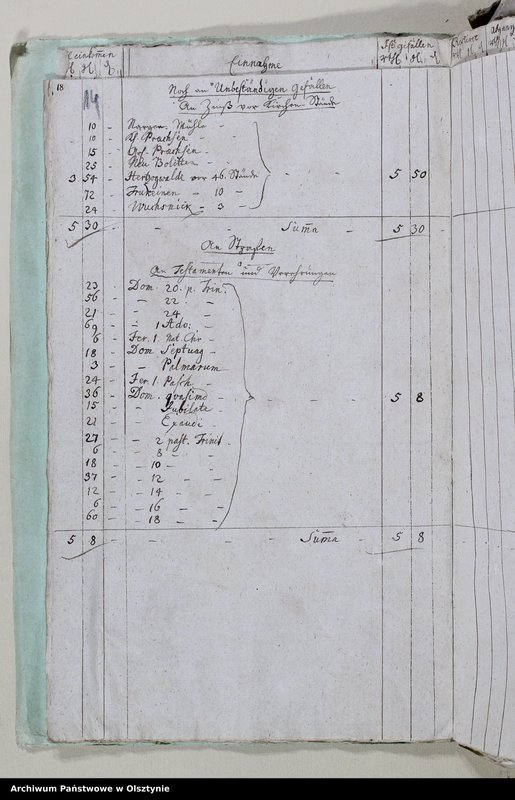 Einnahme
18
14
Noch an Unbeständigen Gefällen
An Zinß vor Kirchen-Stände
10 - Mühle -
10 - Kl Praehsen -
15 - Gr. Praehsen -
25 - Neu Bolitten -
3 54 - Hertzogwalde vor 46. Stände - - 5 50
72 - - 10 -
24 - Wuchsnick - 3 -
5 30 - - - Suma - 5 30
An Strafen
An Testamenten und Verehrungen
23 - Dom. 20. p. Trin.
56 - - 22 -
21 - - 24 -
69 - - 1 Adv: -
6 - Fer. 1 Nat. Chr -
18 - Dom Septuag -
3 - - Palmarum
24 - Fer. 1. Pasch -
36 - Dom. quasimo - - - 5 8
15 - - Jubilate
21 - - Exaudi -
27 - - 2 past. Trinit -
6 - - 8 -
18 - - 10 -
37 - - 12 - -
12 - - 14 - -
6 - - 16 - -
60 - - 18 - -
5 8 - - - - Suma - 5 8
Archiwum Państwowe w Olsztynie